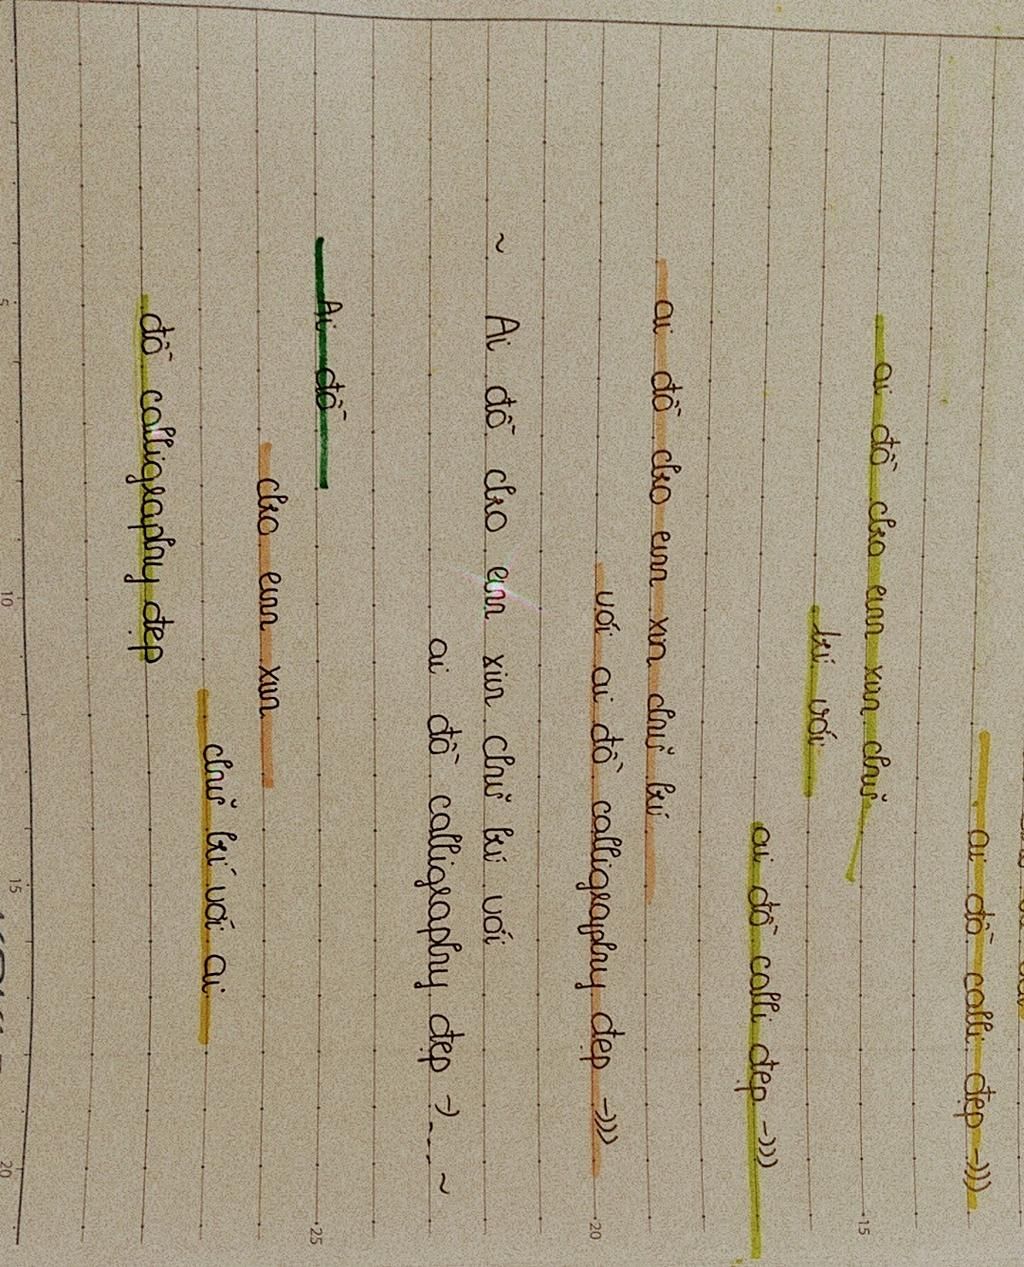 ai đỗ calli đẹp -)))
ai đỗ cho em xin chữ
15
kí với
ai đỗ calli đẹp -)))
ai đỗ cho em xin chữ kí
với ai đỗ calligraphy đẹp -)))
20
~ Ai đỗ cho em xin chữ kí với
ai đỗ calligraphy đẹp -)---- ~
Ai đỗ
25
cho em xin
chữ kí với ai
đỗ calligraphy đẹp
5 10 15 20